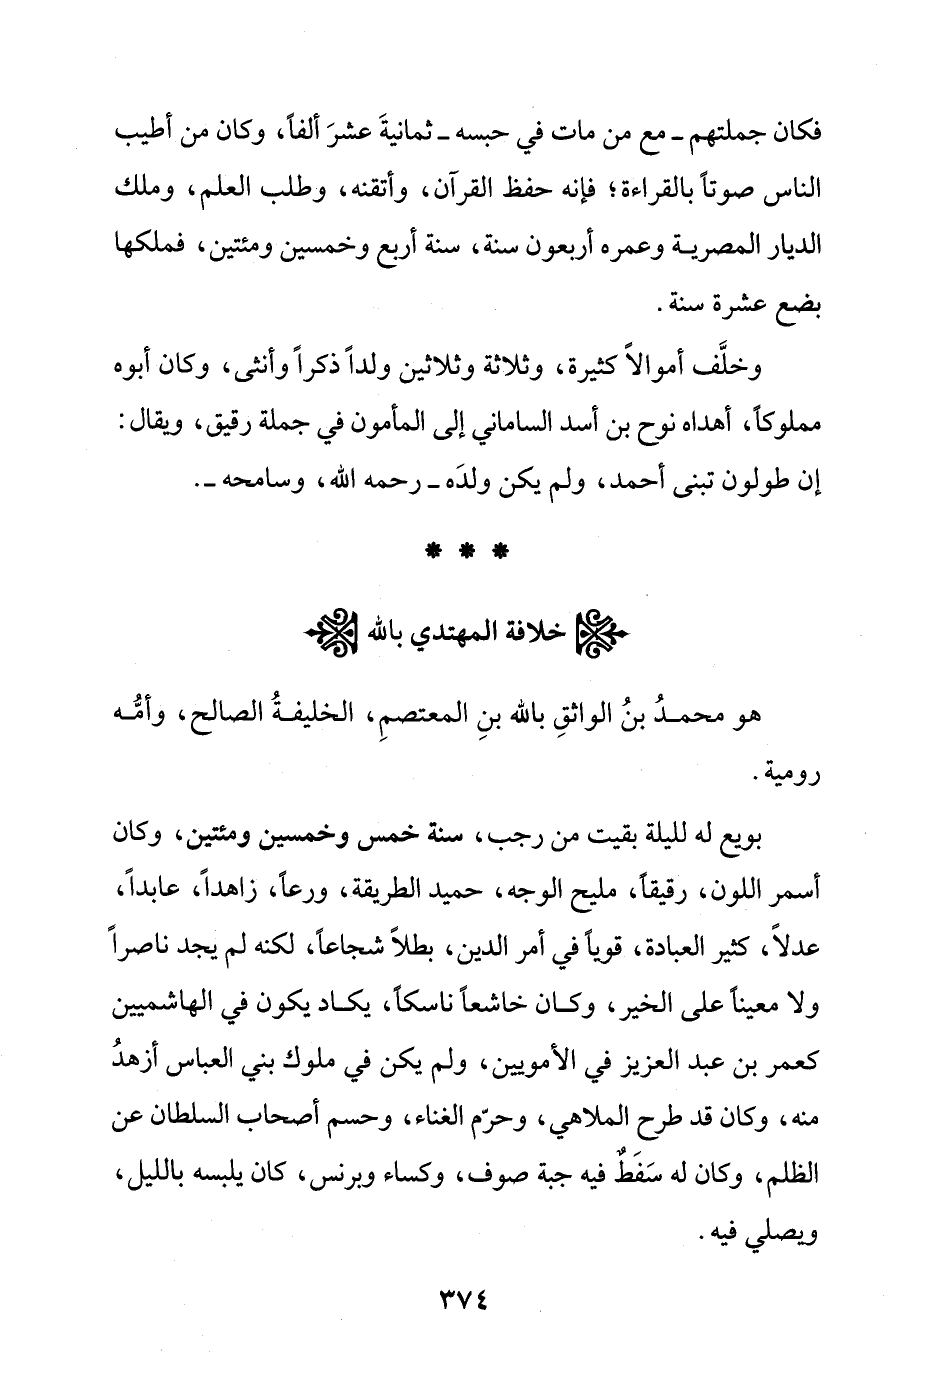 فكان جملتهم ـ مع من مات في حبسه ـ ثمانيةَ عشرَ ألفاً، وكان من أطيب
الناس صوتاً بالقراءة؛ فإنه حفظ القرآن، وأتقنه، وطلب العلم، وملك
الديار المصرية وعمره أربعون سنة، سنة أربع وخمسين ومئتين، فملكها
بضع عشرة سنة.
وخلَّف أموالاً كثيرة، وثلاثة وثلاثين ولداً ذكراً وأنثى، وكان أبوه
مملوكاً، أهداه نوح بن أسد الساماني إلى المأمون في جملة رقيق، ويقال:
إن طولون تبنى أحمد، ولم يكن ولدَه ـ رحمه الله، وسامحه ـ.
* * *
خلافة المهتدي بالله
هو محمدُ بنُ الواثقِ بالله بنِ المعتصمِ، الخليفةُ الصالح، وأمُّه
رومية.
بويع له لليلة بقيت من رجب، سنة خمس وخمسين ومئتين، وكان
أسمر اللون، رقيقاً، مليح الوجه، حميد الطريقة، ورعاً، زاهداً، عابداً،
عدلاً، كثير العبادة، قوياً في أمر الدين، بطلاً شجاعاً، لكنه لم يجد ناصراً
ولا معيناً على الخير، وكان خاشعاً ناسكاً، يكاد يكون في الهاشميين
كعمر بن عبد العزيز في الأمويين، ولم يكن في ملوك بني العباس أزهدُ
منه، وكان قد طرح الملاهي، وحرّم الغناء، وحسم أصحاب السلطان عن
الظلم، وكان له سَفَطٌ فيه جبة صوف، وكساء وبرنس، كان يلبسه بالليل،
ويصلي فيه.
٣٧٤